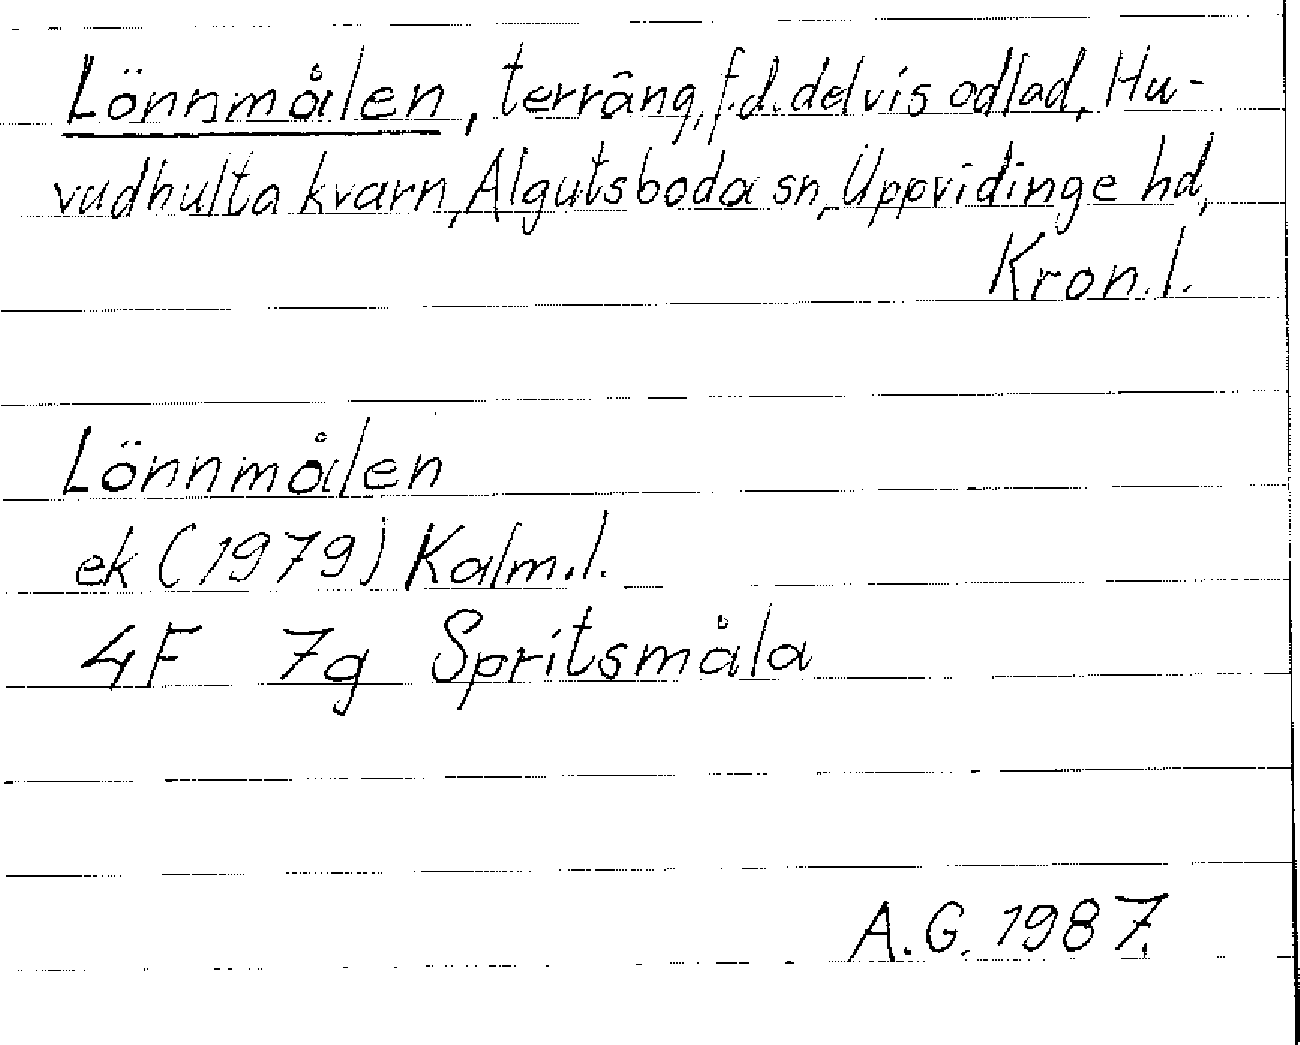 Lönnmålen, terräng, f.d. delvis odlad, Hu-
vudhulta kvarn, Algutsboda sn, Uppvidinge hd,
Kron.l.
Lönnmålen
ek (1979) Kalm.l.
4F 7g Spritsmåla
A.G. 1987.